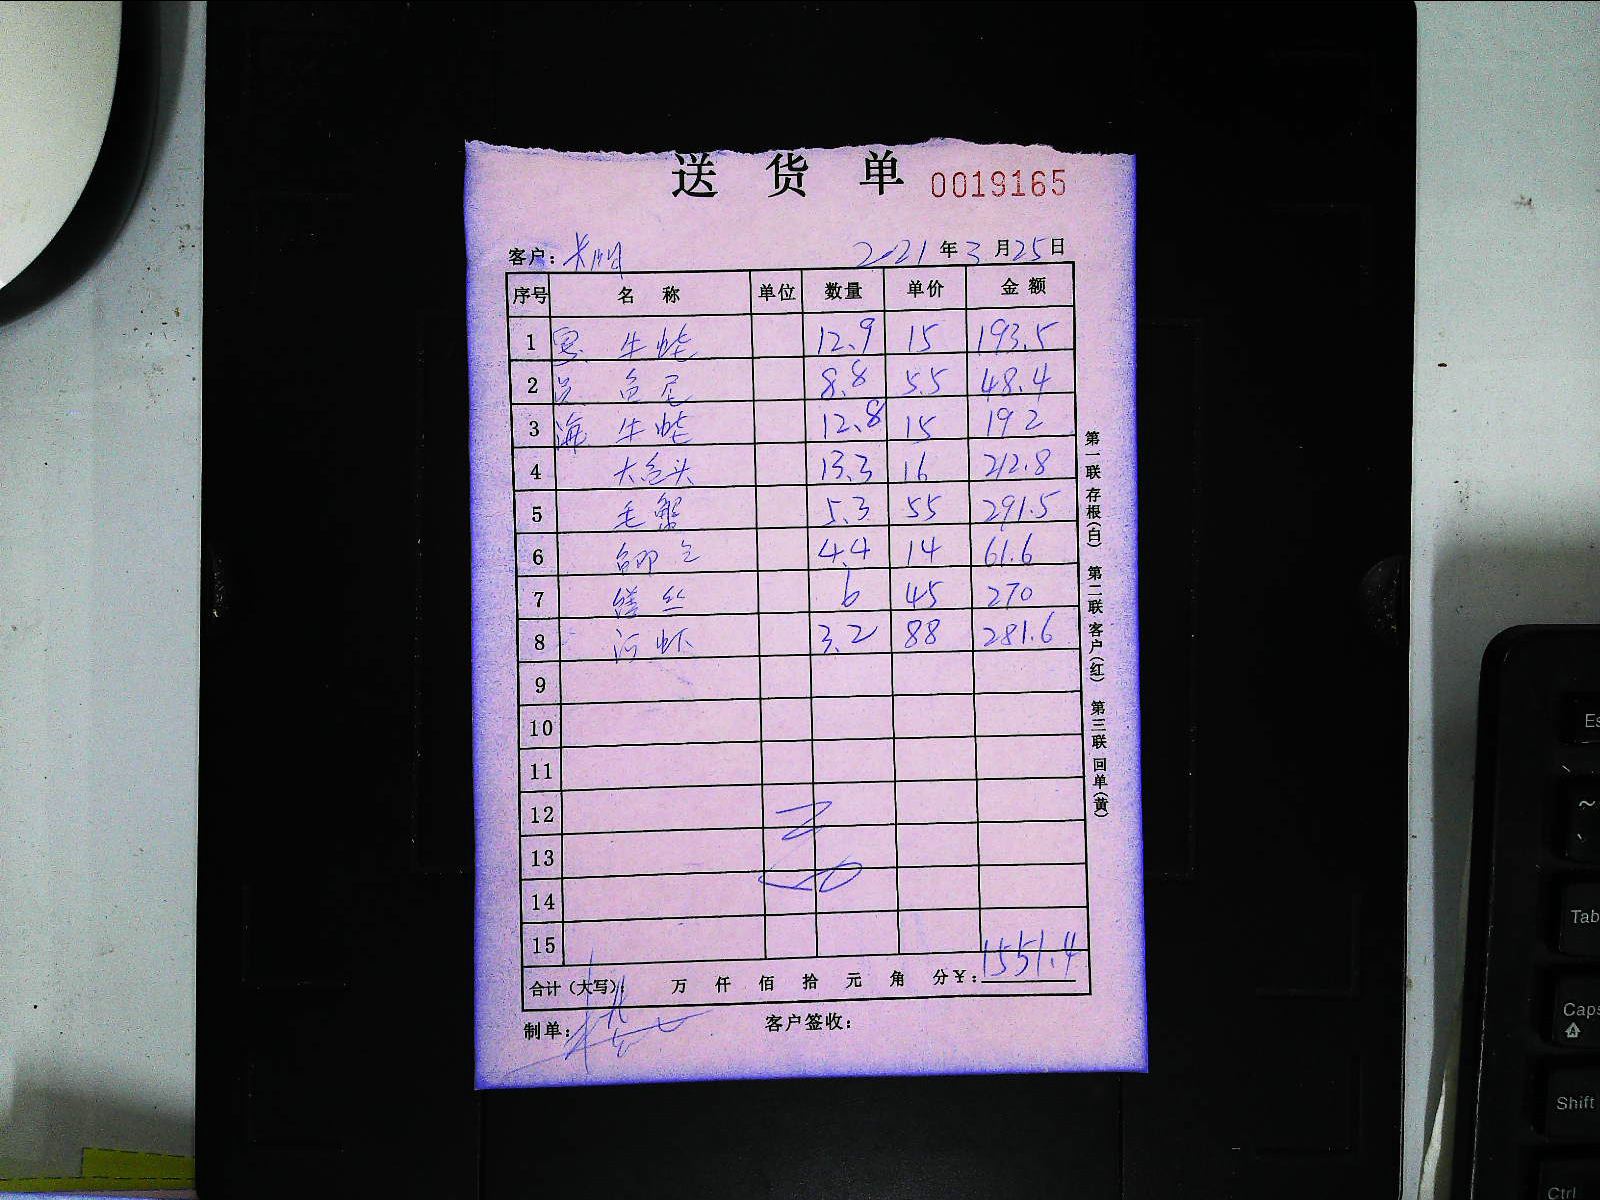 送 货 单 0019165
客户: 2021年3月25日
序号 名 称 单位 数量 单价 金额
1 牛蛙 12.9 15 193.5
2 8.8 5.5 48.4
3 海 牛蛙 12.8 15 192
4 大鱼头 13.3 16 212.8
5 毛蟹 5.3 55 291.5
6 4.4 14 61.6
7 鳝丝 6 45 270
8 河虾 3.2 88 281.6
9
10
11
12
13
14
15
合计（大写）: 万 仟 佰 拾 元 角 分¥: 1551.4
制单: 客户签收:
第一联 存根(白) 第二联 客户(红) 第三联 回单(黄)
Tab
Caps
Shift
Ctrl